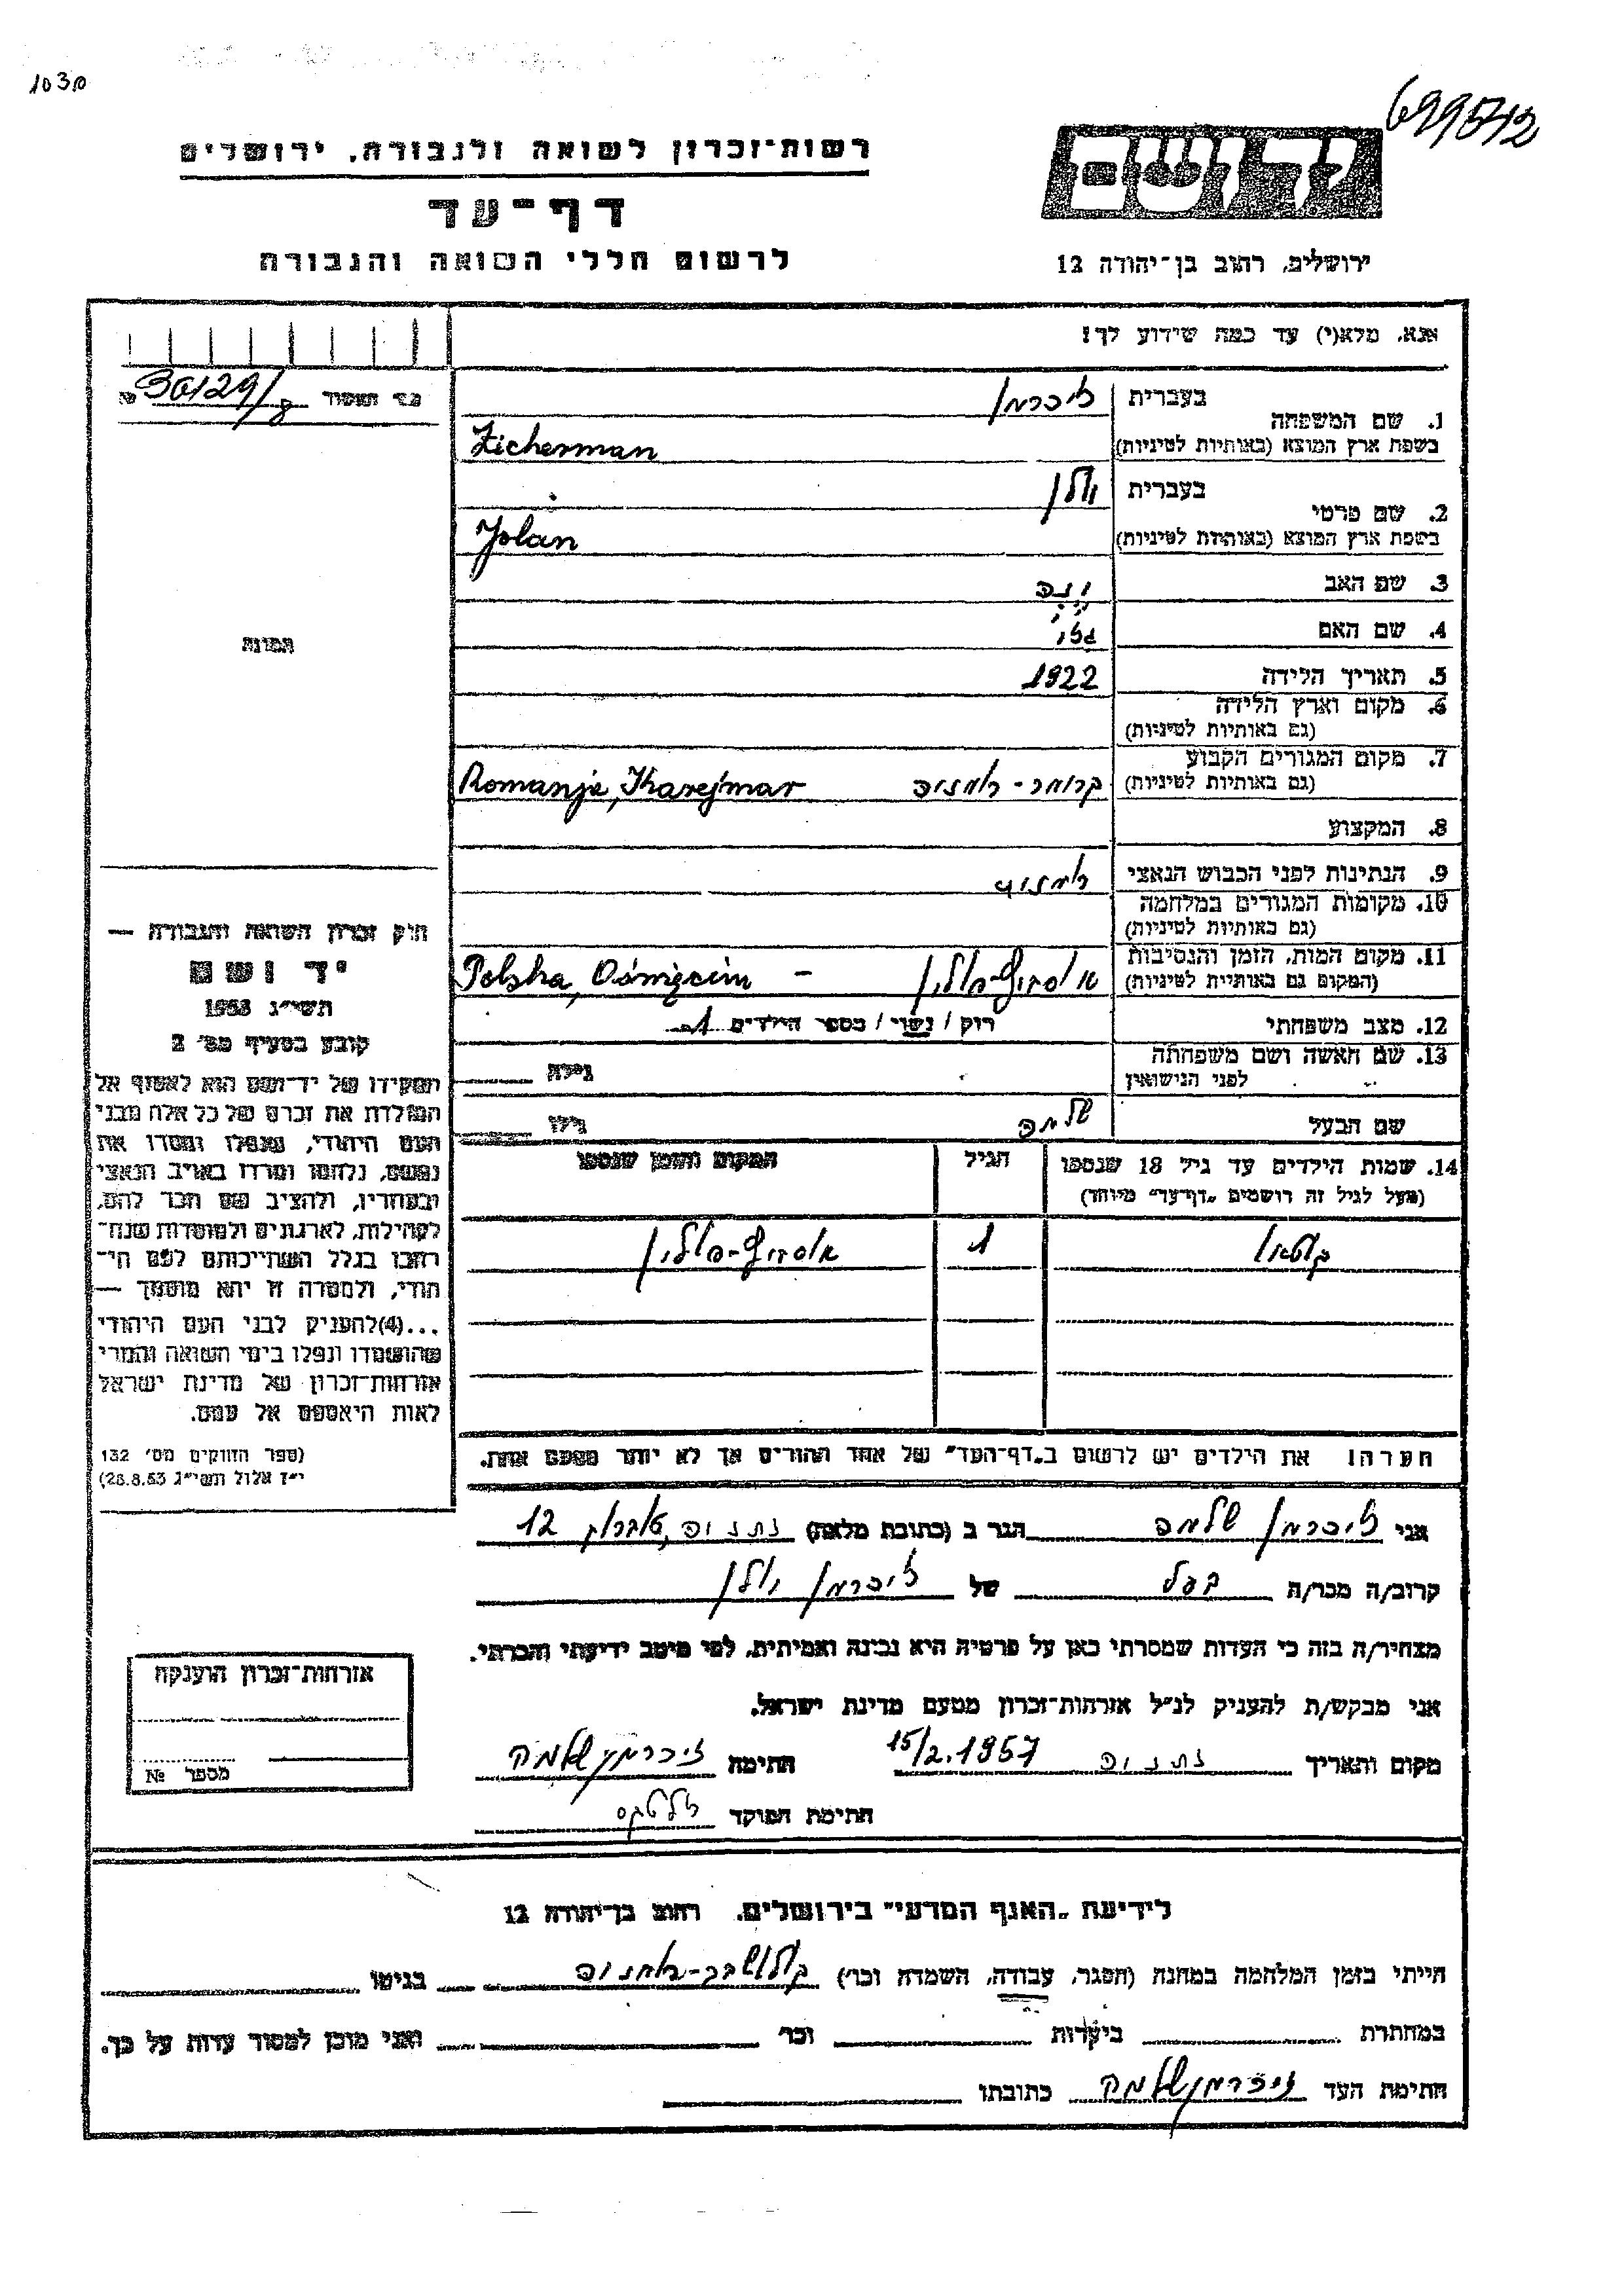 699542
רשות־זכרון לשואה ולגבורה, ירושלים
דף־עד
לרשום חללי השואה והגבורה
ירושלים, רחוב בן־יהודה 12
אנא, מלא(י) עד כמה שידוע לך!
№ 30129/8
1. שם המשפחה
בעברית זיכרמן
בשפת ארץ המוצא (באותיות לטיניות) Zicherman
2. שם פרטי
בעברית יולן
בשפת ארץ המוצא (באותיות לטיניות) Jolán
3. שם האב יונה
4. שם האם
5. תאריך הלידה 1922
6. מקום וארץ הלידה
(גם באותיות לטיניות)
7. מקום המגורים הקבוע
(גם באותיות לטיניות) רומניה Romanja,
8. המקצוע
9. הנתינות לפני הכבוש הנאצי
10. מקומות המגורים במלחמה
(גם באותיות לטיניות)
11. מקום המות, הזמן והנסיבות
(המקום גם באותיות לטיניות) פולין – Polska, Oświęcim
12. מצב משפחתי רוק / נשוי / מספר הילדים 1
13. שם האשה ושם משפחתה
לפני הנישואין גילה
שם הבעל שלמה גילו
14. שמות הילדים עד גיל 18 שנספו הגיל המקום והזמן שנספו
(מעל לגיל זה רושמים „דף־עד" מיוחד)
1 פולין
הערה! את הילדים יש לרשום ב„דף־העד" של אחד ההורים אך לא יותר מפעם אחת.
תמונה
חוק זכרון השואה והגבורה —
יד ושם
תשי"ג 1953
קובע בסעיף מס' 2
תפקידו של יד־ושם הוא לאסוף אל
המולדת את זכרם של כל אלה מבני
העם היהודי, שנפלו ומסרו את
נפשם, נלחמו ומרדו באויב הנאצי
ובעוזריו, ולהציב שם וזכר להם,
לקהילות, לארגונים ולמוסדות שנח־
רבו בגלל השתייכותם לעם הי־
הודי, ולמטרה זו יהא מוסמך —
...(4)להעניק לבני העם היהודי
שהושמדו ונפלו בימי השואה והמרי
אזרחות־זכרון של מדינת ישראל
לאות היאספם אל עמם.
(ספר החוקים מס' 132
י"ז אלול תשי"ג 28.8.53)
אני זיכרמן שלמה הגר ב (כתובת מלאה) נתניה, 12
קרוב/ה מכר/ה בעל של זיכרמן יולן
מצהיר/ה בזה כי העדות שמסרתי כאן על פרטיה היא נכונה ואמיתית, לפי מיטב ידיעתי והכרתי.
אני מבקש/ת להעניק לנ"ל אזרחות־זכרון מטעם מדינת ישראל.
מקום ותאריך נתניה 15/2.1957 חתימה זיכרמן שלמה
חתימת הפוקד
אזרחות־זכרון הוענקה
מספר №
לידיעת „האגף המדעי" בירושלים, רחוב בן־יהודה 12
הייתי בזמן המלחמה במחנה (הסגר, עבודה, השמדה וכו') בגיטו
במחתרת ביערות וכו' ואני מוכן למסור עדות על כך.
חתימת העד זיכרמן שלמה כתובתו